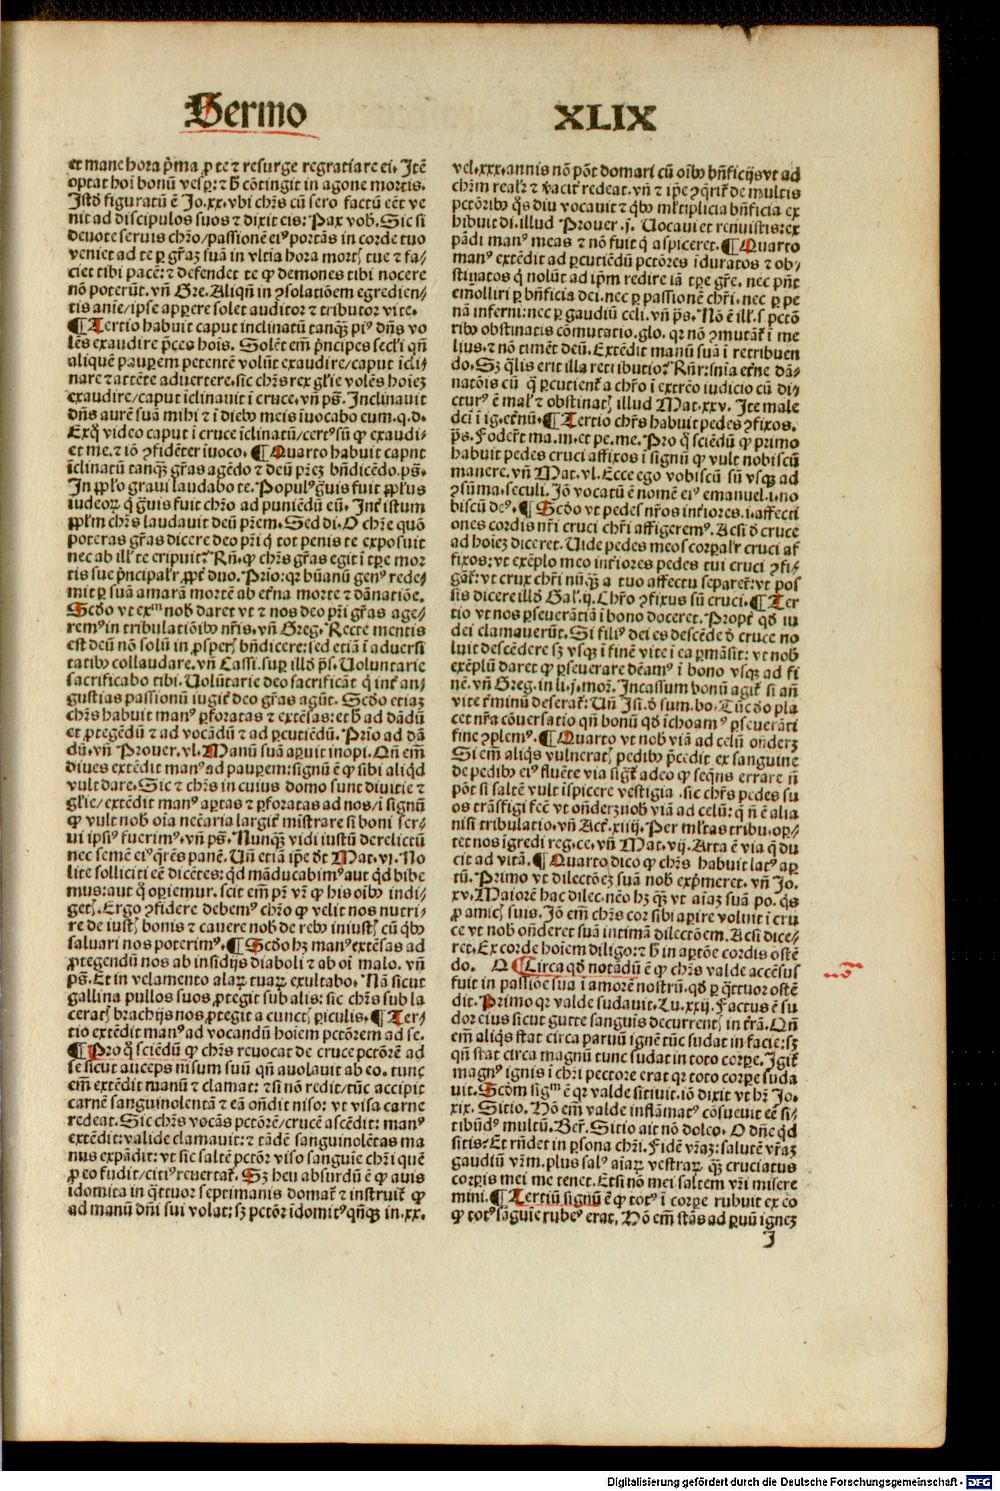 Sermo XLIX
et mane hora p̄ma ꝓ te ⁊ resurge regratiare ei. Itē
optat hoī bonū vesꝑ: ⁊ h̄ cōtingit in agone mortis.
Istd̄ figuratū ē Jo.xx. vbi chr̄s cū sero factū eēt ve
nit ad discipulos suos ⁊ dixit eis: Pax vob. Sic si
deuote seruis chr̄o/passionē eiꝰ portās in corde tuo
veniet ad te ꝑ grāꝫ suā in vltīa hora mortꝭ tue ⁊ fa/
ciet tibi pacē: ⁊ defendet te ꝙ demones tibi nocere
nō poterūt. vn̄ Gre. Aliqn̄ in ꝯsolatiōem egredien/
tis anīe/ipse apꝑere solet auditor ⁊ tributor vite.
¶ Tertio habuit caput inclinatū tanqꝫ piꝰ dn̄s vo
lēs exaudire p̄ces hoīs. Solēt em̄ p̄ncipes secl'i qn̄
aliquē pauꝑem petentē volūt exaudire/caput īcli/
nare ⁊ attēte aduertere. sic chr̄s rex gl'ie volēs hoīeꝫ
exaudire/caput īclinauit ī cruce. vn̄ ps̄. Inclinauit
dn̄s aurē suā mihi ⁊ ī diebꝰ meis īuocabo eum. q.d.
Exq̄ video caput ī cruce īclinatū/certꝰ sū ꝙ exaudi/
et me. ⁊ iō ꝯfidēter iuoco. ¶ Quarto habuit caput
īclinatū tanqꝫ grās agēdo ⁊ deū pr̄eꝫ bn̄dicēdo. ps̄.
In ppl'o graui laudabo te. Populꝰ gͣuis fuit ppl'us
iudeoꝝ q̄ gͣuis fuit chr̄o ad puniēdū eū. Inť istum
ppl'm chr̄s laudauit deū pr̄em. Sed di. O chr̄e quō
poteras grās dicere deo pr̄i q̄ tot penis te exposuit
nec ab ill' te eripuit? Rn̄. ꝙ chr̄s grās egit ī tꝑe mor
tis sue p̄ncipal'r ꝓpť duo. Prīo: qꝛ hūanū genꝰ rede/
mit ꝑ suā amarā mortē ab eťna morte ⁊ dānatiōe.
Scd̄o vt exᵐ nob̄ daret vt ⁊ nos deo pr̄i grās age/
remꝰ in tribulatiōibꝰ nr̄is. vn̄ Greg. Recte mentis
est deū nō solū in ꝓsperꝭ bn̄dicere: sed etiā ī aduersi
tatibꝰ collaudare. vn̄ Cassi. suꝑ illd̄ ps̄. Uoluntarie
sacrificabo tibi. Uolūtarie deo sacrificāt q̄ inť an/
gustias passionū iugiť deo grās agūt. Scd̄o etiaꝫ
chr̄s habuit manꝰ ꝑforatas ⁊ extēsas: et h̄ ad dādū
et ꝓtegēdū ⁊ ad vocādū ⁊ ad ꝑcutiēdū. Prīo ad dā
dū. vn̄ Prouer. vl. Manū suā aꝑuit inopi. Qn̄ em̄
diues extēdit manꝰ ad pauꝑem: signū ē ꝙ sibi aliqd̄
vult dare. Sic ⁊ chr̄s in cuius domo sunt diuitie ⁊
gl'ie/extēdit manꝰ aꝑtas ⁊ ꝑforatas ad nos/ī signū
ꝙ vult nob̄ oīa necāria largiť mīstrare si boni ser/
ui ipsiꝰ fuerimꝰ. vn̄ ps̄. Nunqꝫ vidi iustū derelictū
nec semē eiꝰ q̄rēs panē. Un̄ etiā ip̄e dt̄ Mat. vj. No
lite solliciti eē dicētes: qd̄ māducabimꝰ aut qd̄ bibe
mus: aut q̄ oꝑiemur. scit em̄ pr̄ vr̄ ꝙ his oībꝰ indi/
getꝭ. Ergo ꝯfidere debemꝰ chr̄o ꝙ velit nos nutri/
re de iustꝭ bonis ⁊ cauere nob̄ de rebꝰ iniustꝭ cū q̄bꝰ
saluari nos poterimꝰ. ¶ Scd̄o hꝫ manꝰ extēsas ad
ꝓtegendū nos ab insidijs diaboli ⁊ ab oī malo. vn̄
ps̄. Et in velamento alaꝝ tuaꝝ exultabo. Nā sicut
gallina pullos suos ꝓtegit sub alis: sic chr̄s sub la
ceratꝭ brachijs nos ꝓtegit a cunctꝭ ꝑiculis. ¶ Ter/
tio extēdit manꝰ ad vocandū hoīem pctōrem ad se.
¶ Pro q̄ sciendū ꝙ chr̄s reuocat de cruce pctōrē ad
se sicut auceps nisum suū qn̄ auolauit ab eo. tunc
em̄ extēdit manū ⁊ clamat: ⁊ si nō redit/tūc accipit
carnē sanguinolentā ⁊ eā on̄dit niso: vt visa carne
redeat. Sic chr̄s vocās pctōrē/crucē ascēdit: manꝰ
extēdit: valide clamauit: ⁊ tādē sanguinolētas ma
nus expādit: vt sic saltē pctōr viso sanguīe chr̄i quē
ꝓ eo fudit/citiꝰ reuertať. Sꝫ heu absurdū ē ꝙ auis
idomita in q̄ttuor septimanis domať ⁊ instruiť ꝙ
ad manū dn̄i sui volat: sꝫ pctōr īdomitꝰ qn̄qꝫ in .xx.
vel .xxx. annis nō pōt domari cū oībꝰ bn̄ficijs vt ad
chr̄m real'r ⁊ veraciť redeat. vn̄ ⁊ ip̄e ꝯq̄riť de multis
pctōribꝰ q̄s diu vocauit ⁊ q̄bꝰ ml'tiplicia bn̄ficia ex
hibuit di. illud Prouer. j. Uocaui et renuistis: ex
pādi manꝰ meas ⁊ nō fuit q̄ aspiceret. ¶ Quarto
manꝰ extēdit ad ꝑcutiēdū pctōres īduratos ⁊ ob/
stinatos q̄ nolūt ad ip̄m redire iā tꝑe grē. nec pn̄t
emolliri ꝑ bn̄ficia dei. nec ꝑ passionē chr̄i. nec ꝑ pe
nā inferni: nec ꝑ gaudiū celi. vn̄ ps̄. Nō ē ill' .s. pctō
ribꝰ obstinatis cōmutatio. glo. qꝛ nō ꝯmutāť ī me
lius. ⁊ nō timēt deū. Extēdit manū suā ī retribuen
do. Sꝫ q̄lis erit illa retributio? Rn̄r: snīa eťne dā/
natōis cū q̄ ꝑcutienť a chr̄o ī extreo iudicio cū di/
cetur ē mal' ⁊ obstinatꝭ illud Mat. xxv. Ite male
dci ī ig. eťnū. ¶ Tertio chr̄s habuit pedes ꝯfixos.
ps̄. Foder̄t ma. m. et pe. me. Pro q̄ sciēdū ꝙ primo
habuit pedes cruci affixos ī signū ꝙ vult nobiscū
manere. vn̄ Mat. vl. Ecce ego vobiscū sū vsqꝫ ad
ꝯsūma. seculi. Iō vocatū ē nomē eiꝰ emanuel .i. no
biscū deꝰ. ¶ Scd̄o vt pedes nr̄os inťiores .i. affecti
ones cordis nr̄i cruci chr̄i affigeremꝰ. Acsi d̄ cruce
ad hoīeꝫ diceret. Uide pedes meos corꝑal'r cruci af
fixos: vt exēplo meo inťiores pedes tui cruci ꝯfi/
gāť: vt crux chr̄i nūqꝫ a tuo affectu separeť: vt pos
sis dicere illd̄ Gal'. ij. Chr̄o ꝯfixus sū cruci. ¶ Ter
tio vt nos ꝑseuerātiā ī bono doceret. Propť qd̄ iu
dei clamauerūt. Si filiꝰ dei es descēde d̄ cruce no
luit descēdere sꝫ vsqꝫ ī finē vite ī ea ꝑmāsit: vt nob̄
exēplū daret ꝙ ꝑseuerare deamꝰ ī bono vsqꝫ ad fi
nē. vn̄ Greg. in li. j. mor̄. Incassum bonū agiť si an̄
vite ťminū deserať. Un̄ Isi. d̄ sum. bo. Tūc d̄o pla
cet nr̄a cōuersatio qn̄ bonū qd̄ īchoamꝰ ꝑseuerāti
fine ꝯplemꝰ. ¶ Quarto vt nob̄ viā ad celū on̄dereꝫ
Si em̄ aliqs̄ vulneratꝭ pedibꝰ p̄cedit ex sanguine
de pedibꝰ eiꝰ fluēte via sigťr adeo ꝙ seqn̄s errare n̄
pōt si saltē vult īspicere vestigia . sic chr̄s pedes su
os trāsfigi fec̄ vt on̄dereꝫ nob̄ viā ad celū: q̄ n̄ ē alia
nisi tribulatio. vn̄ Acť. xiiij. Per ml'tas tribu. opꝛ/
tet nos īgredi reg. ce. vn̄ Mat. vij. Arta ē via q̄ du
cit ad vitā. ¶ Quarto dico ꝙ chr̄s habuit latꝰ aꝑ
tū. Primo vt dilectōeꝫ suā nob̄ exp̄meret. vn̄ Jo.
xv. Maiorē hac dilec. nēo hꝫ qꝫ vt aīaꝫ suā po. qs̄
ꝓ amicꝭ suis. Iō em̄ chr̄s cor sibi aꝑire voluit ī cru
ce vt nob̄ on̄deret suā intimā dilectōem. Acsi dice/
ret. Ex corde hoīem diligo: ⁊ h̄ in aꝑtōe cordis ostē
do. O ¶ Circa qd̄ notādū ē ꝙ chr̄s valde accēsus
fuit in passiōe sua ī amorē nostrū. qd̄ ꝑ q̄ttuor ostē
dit. Primo qꝛ valde sudauit. Lu. xxij. Factus ē su
dor eius sicut gutte sanguīs decurrentꝭ in ťrā. Qn̄
em̄ aliqs̄ stat circa paruū ignē tūc sudat in facie: sꝫ
qn̄ stat circa magnū tunc sudat in toto corꝑe. Igiť
magnꝰ ignis ī chr̄i pectore erat qꝛ toto corꝑe suda
uit. Scd̄m sigᵐ ē qꝛ valde sitiuit. iō dixit vt hr̄ Jo.
xix. Sitio. Hō em̄ valde inflāmatꝰ cōsueuit eē si/
tibūdꝰ multū. Ber̄. Sitio ait nō doleo. O dn̄e qd̄
sitis? Et rn̄det in ꝑsona chr̄i. Fidē vr̄aꝫ: salutē vr̄aꝫ
gaudiū vr̄m. plus salꝰ aīaꝝ vestraꝝ qꝫ cruciatus
corꝑis mei me tenet. Etsi nō mei saltem vr̄i misere
mini. ¶ Tertiū signū ē ꝙ totꝰ ī corꝑe rubuit ex eo
ꝙ totꝰ sāguīe rubeꝰ erat. Hō em̄ stās ad ꝑuū igneꝫ
nō
I
Digitalisierung gefördert durch die Deutsche Forschungsgemeinschaft - DFG